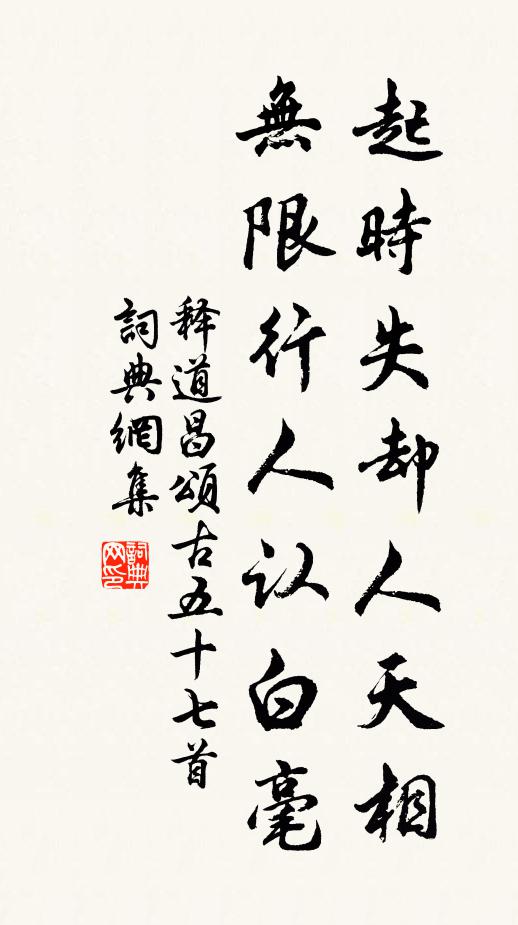 起時失却人天相
無限行人认白毫
释道昌頌古五十七首
詞典網集
詞典网印